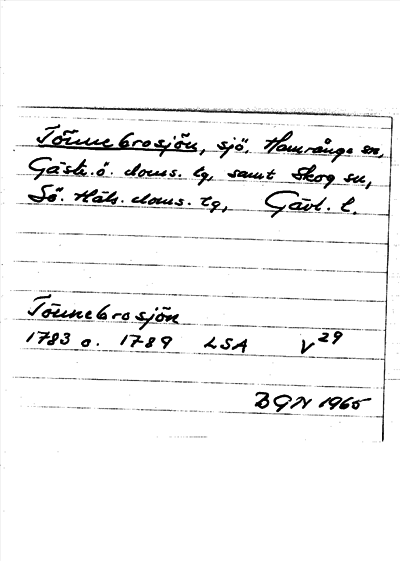 Tönnebrosjön, sjö, Hamrånge sn,
Gästr. ö. doms. lg, samt Skog sn,
Sö. Häls. doms. lg, Gävl. l.
Tönnebrosjön
1783 o. 1789 LSA V29
BGN 1965